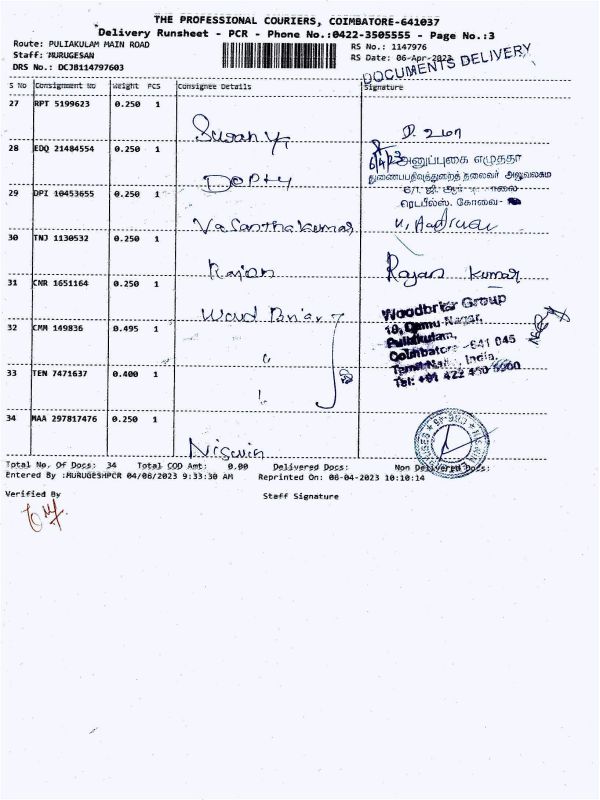 THE PROFESSIONAL COURIERS, COIMBATORE-641037
Delivery Runsheet - PCR - Phone No.:0422-3505555 - Page No.:3
Route: PULIAKULAM MAIN ROAD
Staff: MURUGESAN
DRS No.: DCJB114797603
RS No.: 1147976
RS Date: 06-Apr-2023
DOCUMENTS DELIVERY
S No Consignment No Weight PCS Consignee Details Signature
27 RPT 5199623 0.250 1
Susan
28 EDQ 21484554 0.250 1
Depty
அனுப்புகை எழுத்தர்
துணைபதிவுத்துறைத் தலைவர் அலுவலகம்
ரெடபீல்ஸ். கோவை-
29 DPI 10453655 0.250 1
Vasanthakumar
30 TNJ 1130532 0.250 1
Rajan Rajan Kumar
31 CNR 1651164 0.250 1
Wood Briar
Woodbriar Group
10, Damu Nagar,
Puliakulam,
Coimbatore -641 045
Tamil Nadu, India.
Tel: +91 422 430 5900
32 CMM 149836 0.495 1
"
33 TEN 7471637 0.400 1
"
34 MAA 297817476 0.250 1
Total No. Of Docs: 34 Total COD Amt: 0.00 Delivered Docs: Non Delivered Docs:
Entered By :MURUGESHPCR 04/06/2023 9:33:30 AM Reprinted On: 06-04-2023 10:10:14
Verified By Staff Signature